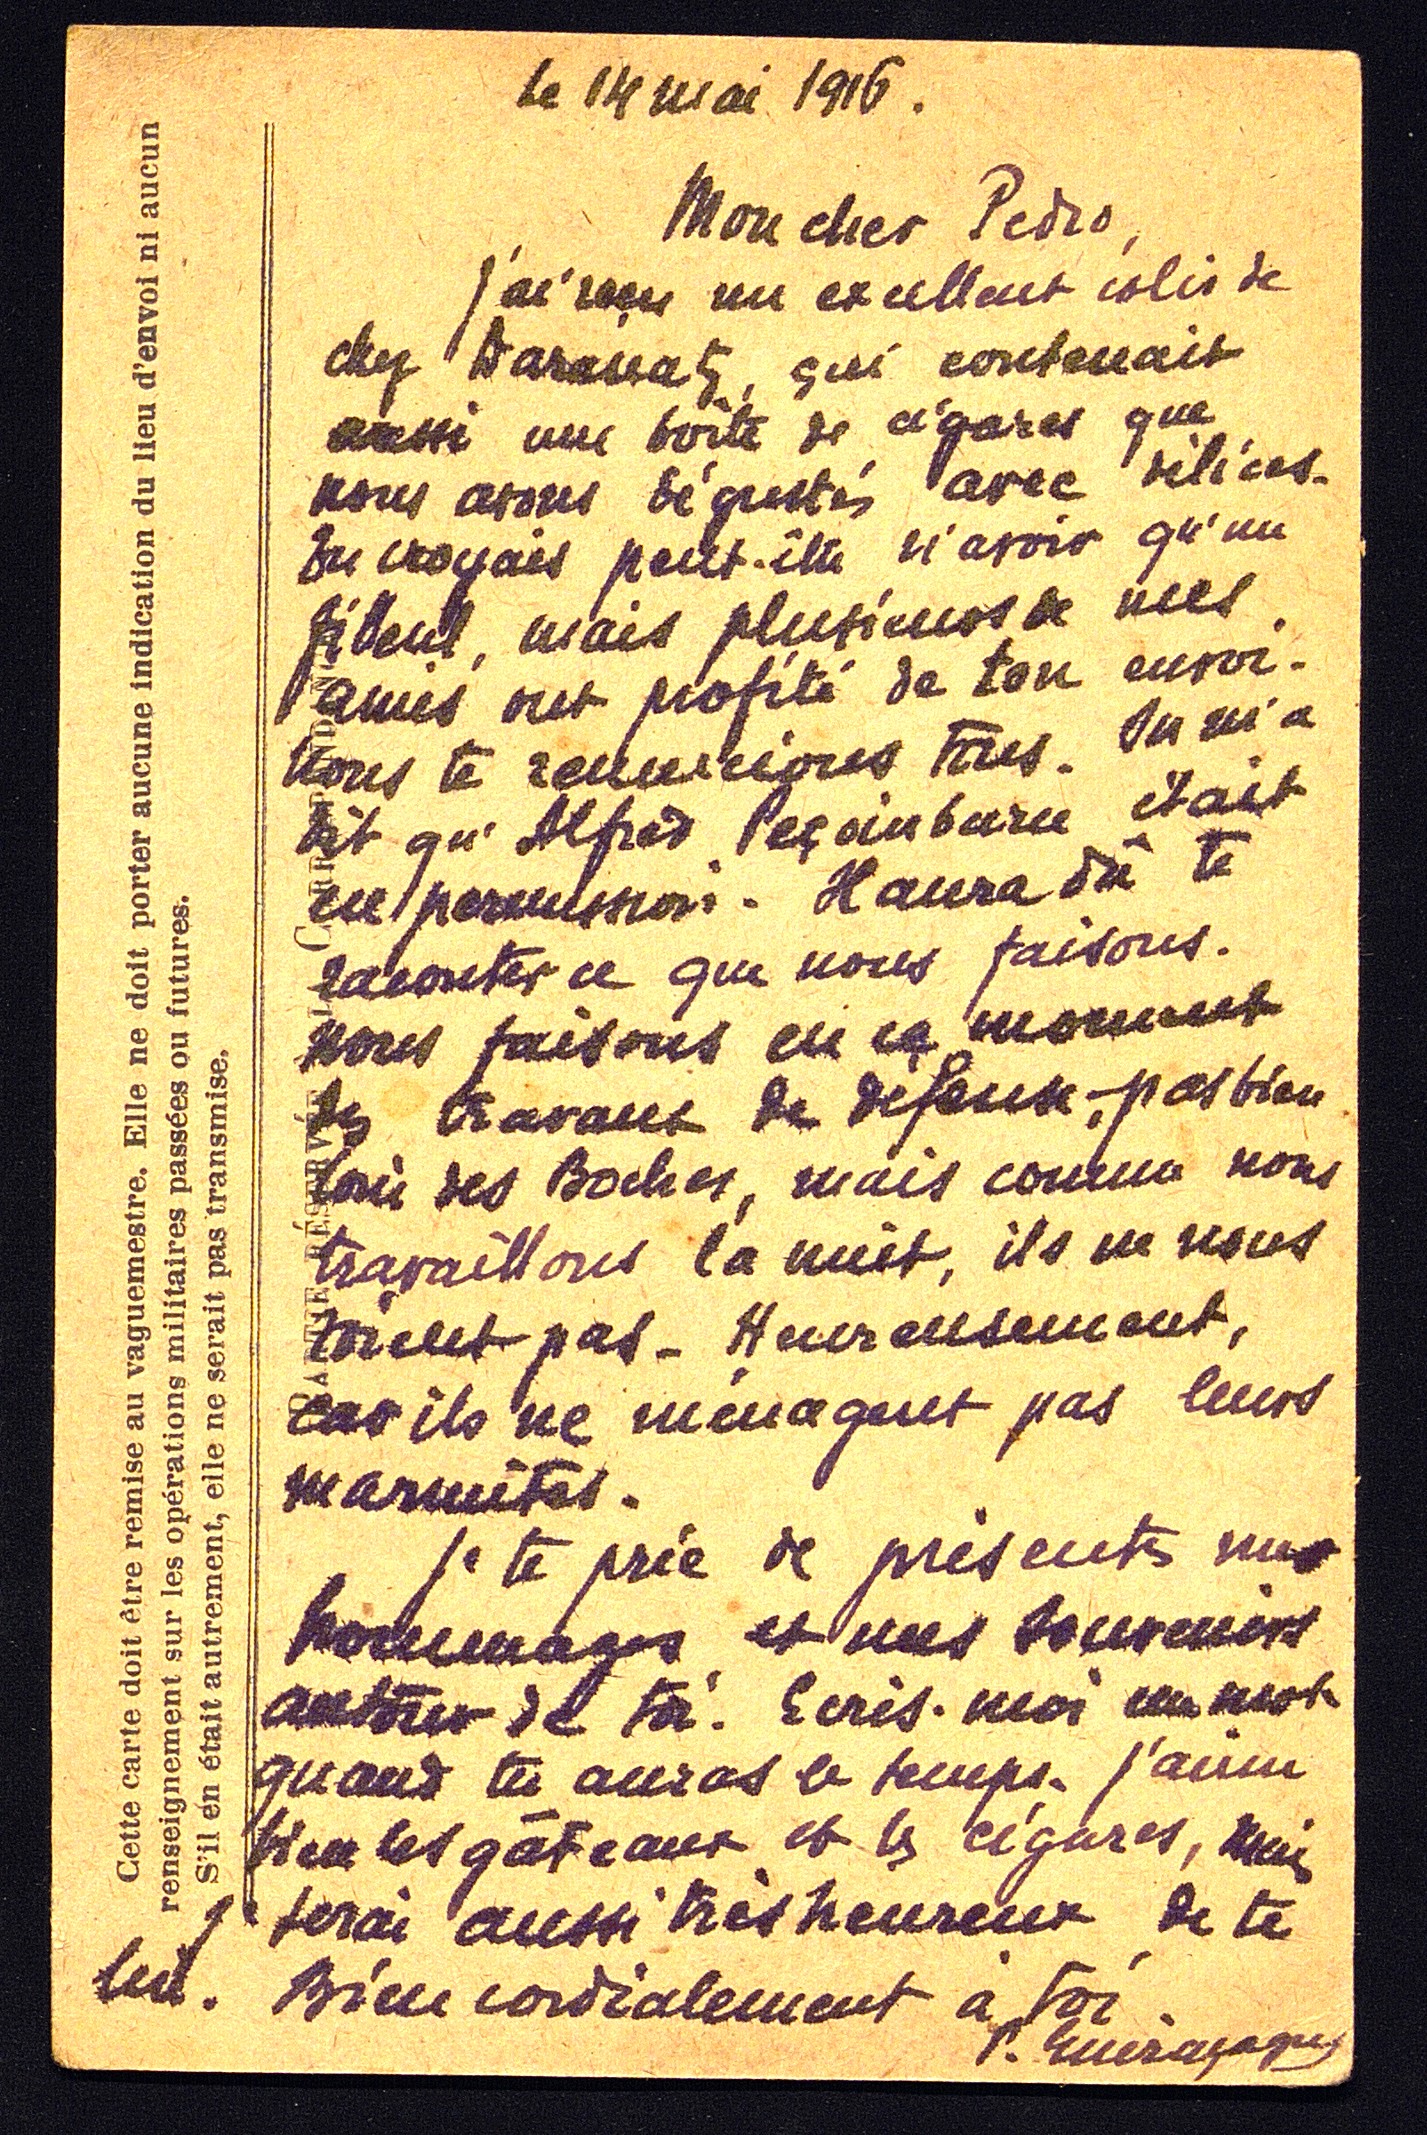 le 14 mai 1916.
Mon cher Pedro,
j'ai reçu un excellent colis de
chez Daranatz, qui contenait
aussi une boîte de cigares que
nous avons dégustés avec délices.
Tu croyais peut-être n'avoir qu'un
filleul, mais plusieurs de mes
amis ont profité de ton envoi.
Nous te remercions tous. Tu m'a
dit qu' Alfred était
en permission. Il aura dû te
raconter ce que nous faisons.
Nous faisons en ce moment
des travaux de défense, pas bien
loin des Boches, mais comme nous
travaillons la nuit, ils ne nous
voient pas - Heureusement,
car ils ne ménagent pas leurs
marmites.
Je te prie de présenter mes
hommages et mes souvenirs
autour de toi. Ecris-moi un mot
quand tu auras le temps. J'aime
bien les gâteaux et les cigares, mais
je serai aussi très heureux de te
lire. Bien cordialement à toi.
P.
Cette carte doit être remise au vaguemestre. Elle ne doit porter aucune indication du lieu d'envoi ni aucun
renseignement sur les opérations militaires passées ou futures.
S'il en était autrement, elle ne serait pas transmise.
PARTIE RÉSERVÉE A LA CORRESPONDANCE